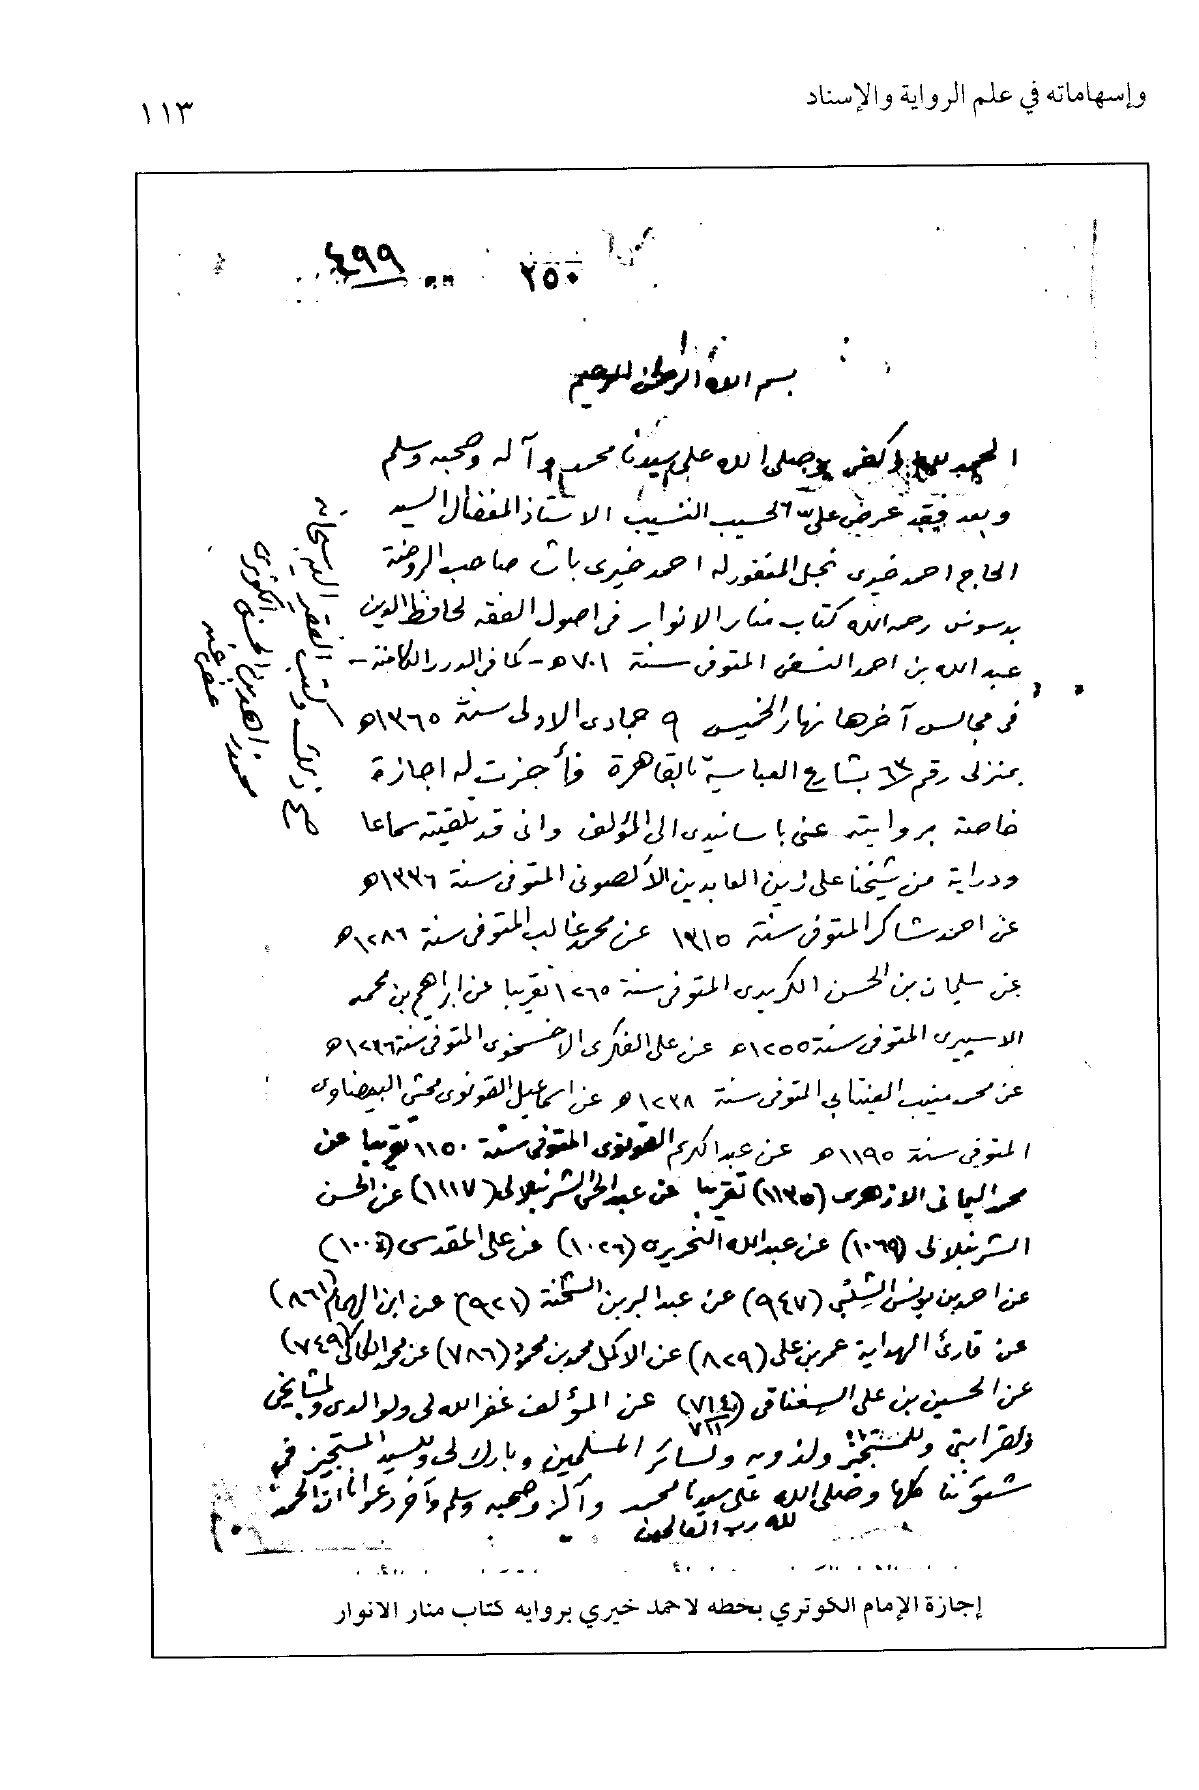 وإسهاماته في علم الرواية والإسناد
١١٣
٤٩٩
٢٥٠
بسم الله الرحمن الرحيم
الحمد لله وكفى وصلى الله على سيدنا محمد وآله وصحبه وسلم
وبعد فقد عرض على الحسيب النسيب الاستاذ المفضال السيد
الحاج احمد خيرى نجل المغفور له احمد خيرى باشا صاحب الروضة
رحمه الله كتاب منار الانوار فى اصول الفقه لحافظ الدين
عبد الله بن احمد النسفى المتوفى سنة ٧٠١ھ - كما فى الدرر الكامنة -
فى مجالس آخرها نهار الخميس ٩ جمادى الاولى سنة ١٣٦٥ھ
بمنزلى رقم ٦٣ بشارع العباسية بالقاهرة فأجزت له اجازة
خاصة بروايته عنى باسانيدى الى المؤلف وانى قد تلقيته سماعا
ودراية من شيخنا على زين العابدين الألصونى المتوفى سنة ١٣٣٦ھ
عن احمد شاكر المتوفى سنة ١٣١٥ عن محمد غالب المتوفى سنة ١٢٨٦ھ
عن سليمان بن الحسن الكريدى المتوفى سنة ١٢٦٥ تقريبا عن ابراهيم بن محمد
الاسبيرى المتوفى سنة ١٢٥٥ھ عن على الفكرى الاخسخوى المتوفى سنة ١٢٣٦ھ
عن محمد منيب العينتابى المتوفى سنة ١٢٣٨ھ عن اسماعيل القونوى محشى البيضاوى
المتوفى سنة ١١٩٥ھ عن عبد الكريم القونوى المتوفى سنة ١١٥٠ تقريبا عن
محمد اليمانى الازهرى (١١٣٥) تقريبا عن عبد الحى الشرنبلالى (١١١٧) عن الحسن
الشرنبلالى (١٠٦٩) عن عبد الله النحريرى (١٠٢٦) عن على المقدسى (١٠٠٤)
عن احمد بن يونس الشلبى (٩٤٧) عن عبد البر بن الشحنة (٩٢١) عن ابن الهمام (٨٦١)
عن قارئ الهداية عمر بن على (٨٢٩) عن الاكمل محمد بن محمود (٧٨٦) عن محمد الكاكى (٧٤٩)
عن الحسين بن على السغناقى (٧١٤) عن المؤلف غفر الله لى ولوالدى ولمشايخى
٧١١
ولقرابتى وللمستجيز ولذويه ولسائر المسلمين وبارك لى وللسيد المستجيز فى
شئوننا كلها وصلى الله على سيدنا محمد وآله وصحبه وسلم وآخر دعوانا ان الحمد
لله رب العالمين
وكتب الفقير اليه سبحانه
محمد زاهد بن الحسن الكوثرى
عفى عنه
إجازة الإمام الكوثري بخطه لاحمد خيري بروايه كتاب منار الانوار